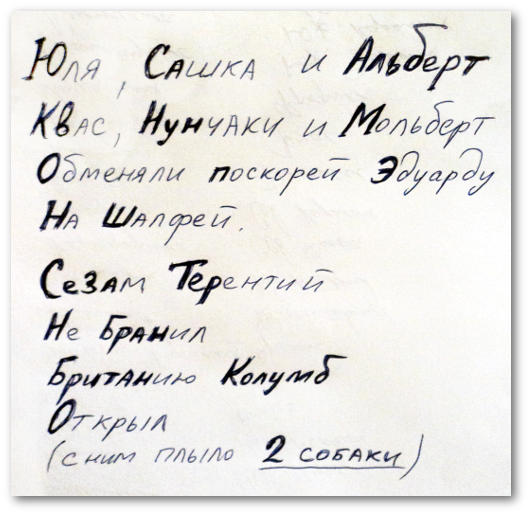 Юля, Сашка и Альберт
Квас, Нунчаки и Мольберт
Обменяли поскорей Эдуарду
На Шалфей.
Сезам Терентий
Не Бранил
Британию Колумб
Открыл
(с ним плыло 2 собаки)